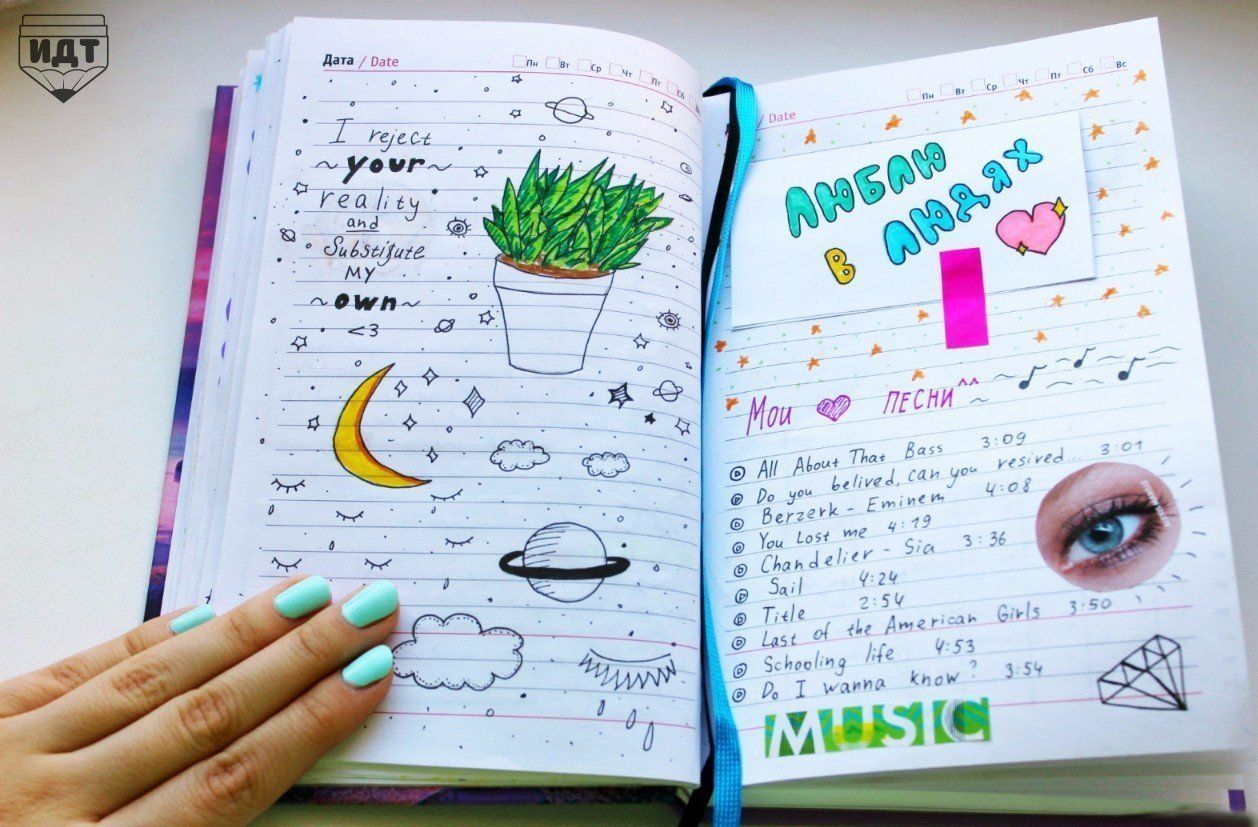 ИДТ
Дата / Date
Пн Вт Ср Чт Пт Сб
I reject
~ your ~
reality
and
Substitute
MY
~ own ~
<3
/ Date
Пн Вт Ср Чт Пт Сб Вс
ЛЮБЛЮ
В ЛЮДЯХ
Мои ПЕСНИ ^^
All About That Bass 3:09
Do you belived, can you resived... 3:01
Berzerk - Eminem 4:08
You Lost me 4:19
Chandelier - Sia 3:36
Sail 4:24
Title 2:54
Last of the American Girls 3:50
Schooling life 4:53
Do I wanna know? 3:54
MUSIC